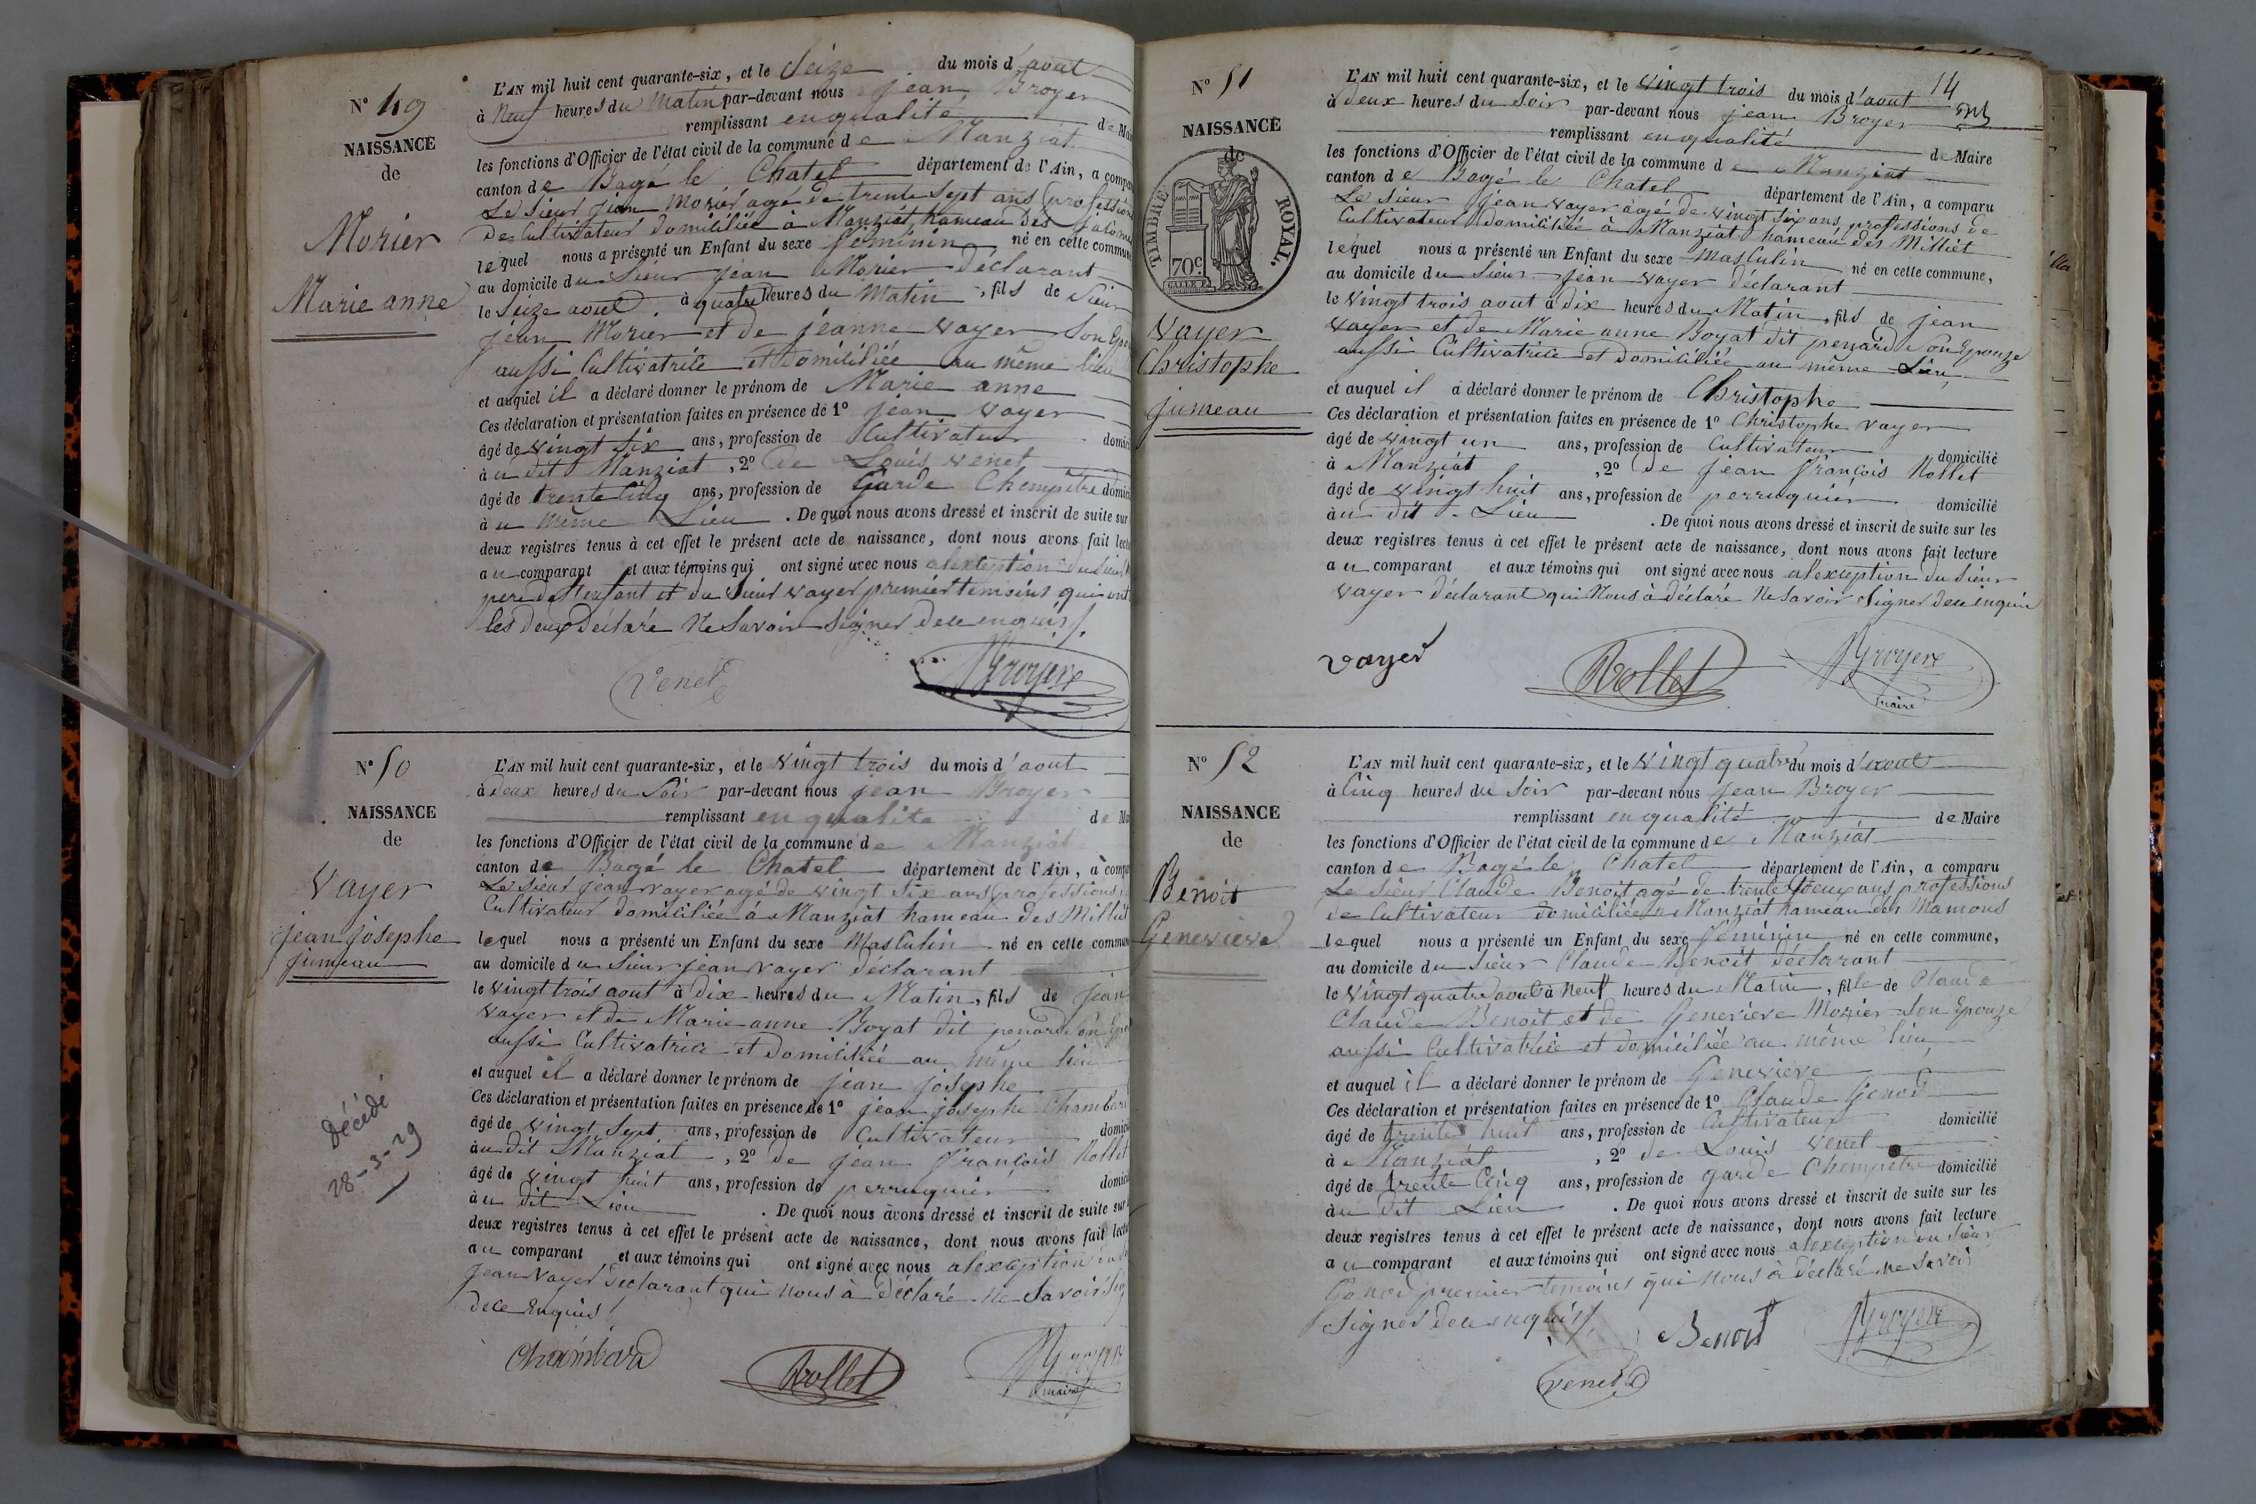 N° 49
NAISSANCE
de
Morier
Marie anne
L'AN mil huit cent quarante-six, et le Seize du mois d'aout
à Neuf heures du Matin par-devant nous jean Broyer
remplissant en qualité de
les fonctions d'Officier de l'état civil de la commune de Manziat
canton de Bagé le Chatel département de l'Ain, a
Le Sieur jean Morier agé de trente Sept ans profession
de Cultivateur domiciliée à Manziat hameau des
lequel nous a présenté un Enfant du sexe féminin né en cette commune
au domicile du Sieur jean Morier déclarant
le Seize aout à quatre heures du Matin, fils de Sieur
jean Morier et de jeanne Vayer Son
aussi Cultivatrice et domiciliée au même lieu
et auquel il a déclaré donner le prénom de Marie anne
Ces déclaration et présentation faites en présence de 1° jean Vayer
âgé de vingt Six ans, profession de Cultivateur
à u dit Manziat, 2° de Louis Venet
âgé de trente Cinq ans, profession de Garde Champêtre
à u même Lieu. De quoi nous avons dressé et inscrit de suite sur
deux registres tenus à cet effet le présent acte de naissance, dont nous avons fait
au comparant et aux témoins qui ont signé avec nous alexception du Sieur
pere de l'enfant et du Sieur Vayer premier temoins qui ont
les deux Déclaré Ne Savoir Signer de ce enquis
Venet
Broyere
N° 50
NAISSANCE
de
Vayer
jean josephe
jumeau
Décédé
28-3-29
L'AN mil huit cent quarante-six, et le vingt trois du mois d'aout
à deux heures du Soir par-devant nous jean Broyer
remplissant en qualité de
les fonctions d'Officier de l'état civil de la commune de Manziat
canton de Bagé le Chatel département de l'Ain, a
Le Sieur jean vayer agé de vingt Six ans professions
Cultivateur domiciliée à Manziat hameau des Milliet
lequel nous a présenté un Enfant du sexe Masculin né en cette
au domicile du Sieur jean vayer déclarant
le vingt trois aout à dix heures du Matin, fils de jean
Vayer et de Marie anne Boyat dit penard Son
aussi Cultivatrice et domiciliée au même lieu
et auquel il a déclaré donner le prénom de jean josephe
Ces déclaration et présentation faites en présence de 1° jean josephe Chambard
âgé de vingt Sept ans, profession de Cultivateur
à u dit Manziat, 2° de jean françois Rollet
âgé de vingt huit ans, profession de perruquier
à u dit Lieu. De quoi nous avons dressé et inscrit de suite sur
deux registres tenus à cet effet le présent acte de naissance, dont nous avons fait
au comparant et aux témoins qui ont signé avec nous alexception
jean Vayer Déclarant qui nous à déclaré ne Savoir
de ce Enquis
Chambard
Rollet
Broyere
maire
14
N° 51
NAISSANCE
de
TIMBRE ROYAL.
70c
Vayer
Christophe
jumeau
L'AN mil huit cent quarante-six, et le vingt trois du mois d'aout
à deux heures du Soir par-devant nous jean Broyer
remplissant en qualité de Maire
les fonctions d'Officier de l'état civil de la commune de Manziat
canton de Bagé le Chatel département de l'Ain, a comparu
Le Sieur jean vayer agé de vingt Six ans, professions de
Cultivateur domiciliée à Manziat hameau des Milliet
lequel nous a présenté un Enfant du sexe Masculin né en cette commune,
au domicile du Sieur jean vayer déclarant
le Vingt trois aout à dix heures du Matin, fils de jean
Vayer et de Marie anne Boyat dit penard Son Epouze
aussi Cultivatrice et domiciliée au même Lieu
et auquel il a déclaré donner le prénom de Christophe
Ces déclaration et présentation faites en présence de 1° Christophe vayer
âgé de vingt un ans, profession de Cultivateur domicilié
à Manziat, 2° de jean françois Rollet
âgé de vingt huit ans, profession de perruquier domicilié
à u dit Lieu. De quoi nous avons dressé et inscrit de suite sur les
deux registres tenus à cet effet le présent acte de naissance, dont nous avons fait lecture
au comparant et aux témoins qui ont signé avec nous alexception du Sieur
Vayer déclarant qui Nous à déclaré Ne Savoir Signer de ce enquis
Vayer
Rollet
Broyere
maire
N° 52
NAISSANCE
de
Benoit
Genevieve
L'AN mil huit cent quarante-six, et le vingt quatre du mois d'aout
à Cinq heures du Soir par-devant nous jean Broyer
remplissant en qualité de Maire
les fonctions d'Officier de l'état civil de la commune de Manziat
canton de Bagé le Chatel département de l'Ain, a comparu
Le Sieur Claude Benoit agé de trente deux ans, professions
de Cultivateur domiciliée à Manziat hameau des Mamons
lequel nous a présenté un Enfant du sexe féminin né en cette commune,
au domicile du Sieur Claude Benoit déclarant
le Vingt quatre aout à Neuf heures du Matin, fille de Claude
Claude Benoit et de Genevieve Morier Son Epouze
aussi Cultivatrice et domiciliée au même lieu
et auquel il a déclaré donner le prénom de Genevieve
Ces déclaration et présentation faites en présence de 1° Claude Genod
âgé de trente huit ans, profession de Cultivateur domicilié
à Manziat, 2° de Louis Venet
âgé de trente Cinq ans, profession de garde Champetre domicilié
à u dit Lieu. De quoi nous avons dressé et inscrit de suite sur les
deux registres tenus à cet effet le présent acte de naissance, dont nous avons fait lecture
au comparant et aux témoins qui ont signé avec nous alexception du Sieur
Genod premier temoins qui nous à déclaré ne Savoir
Signer de ce enquis
Benoit
Broyere
Venet